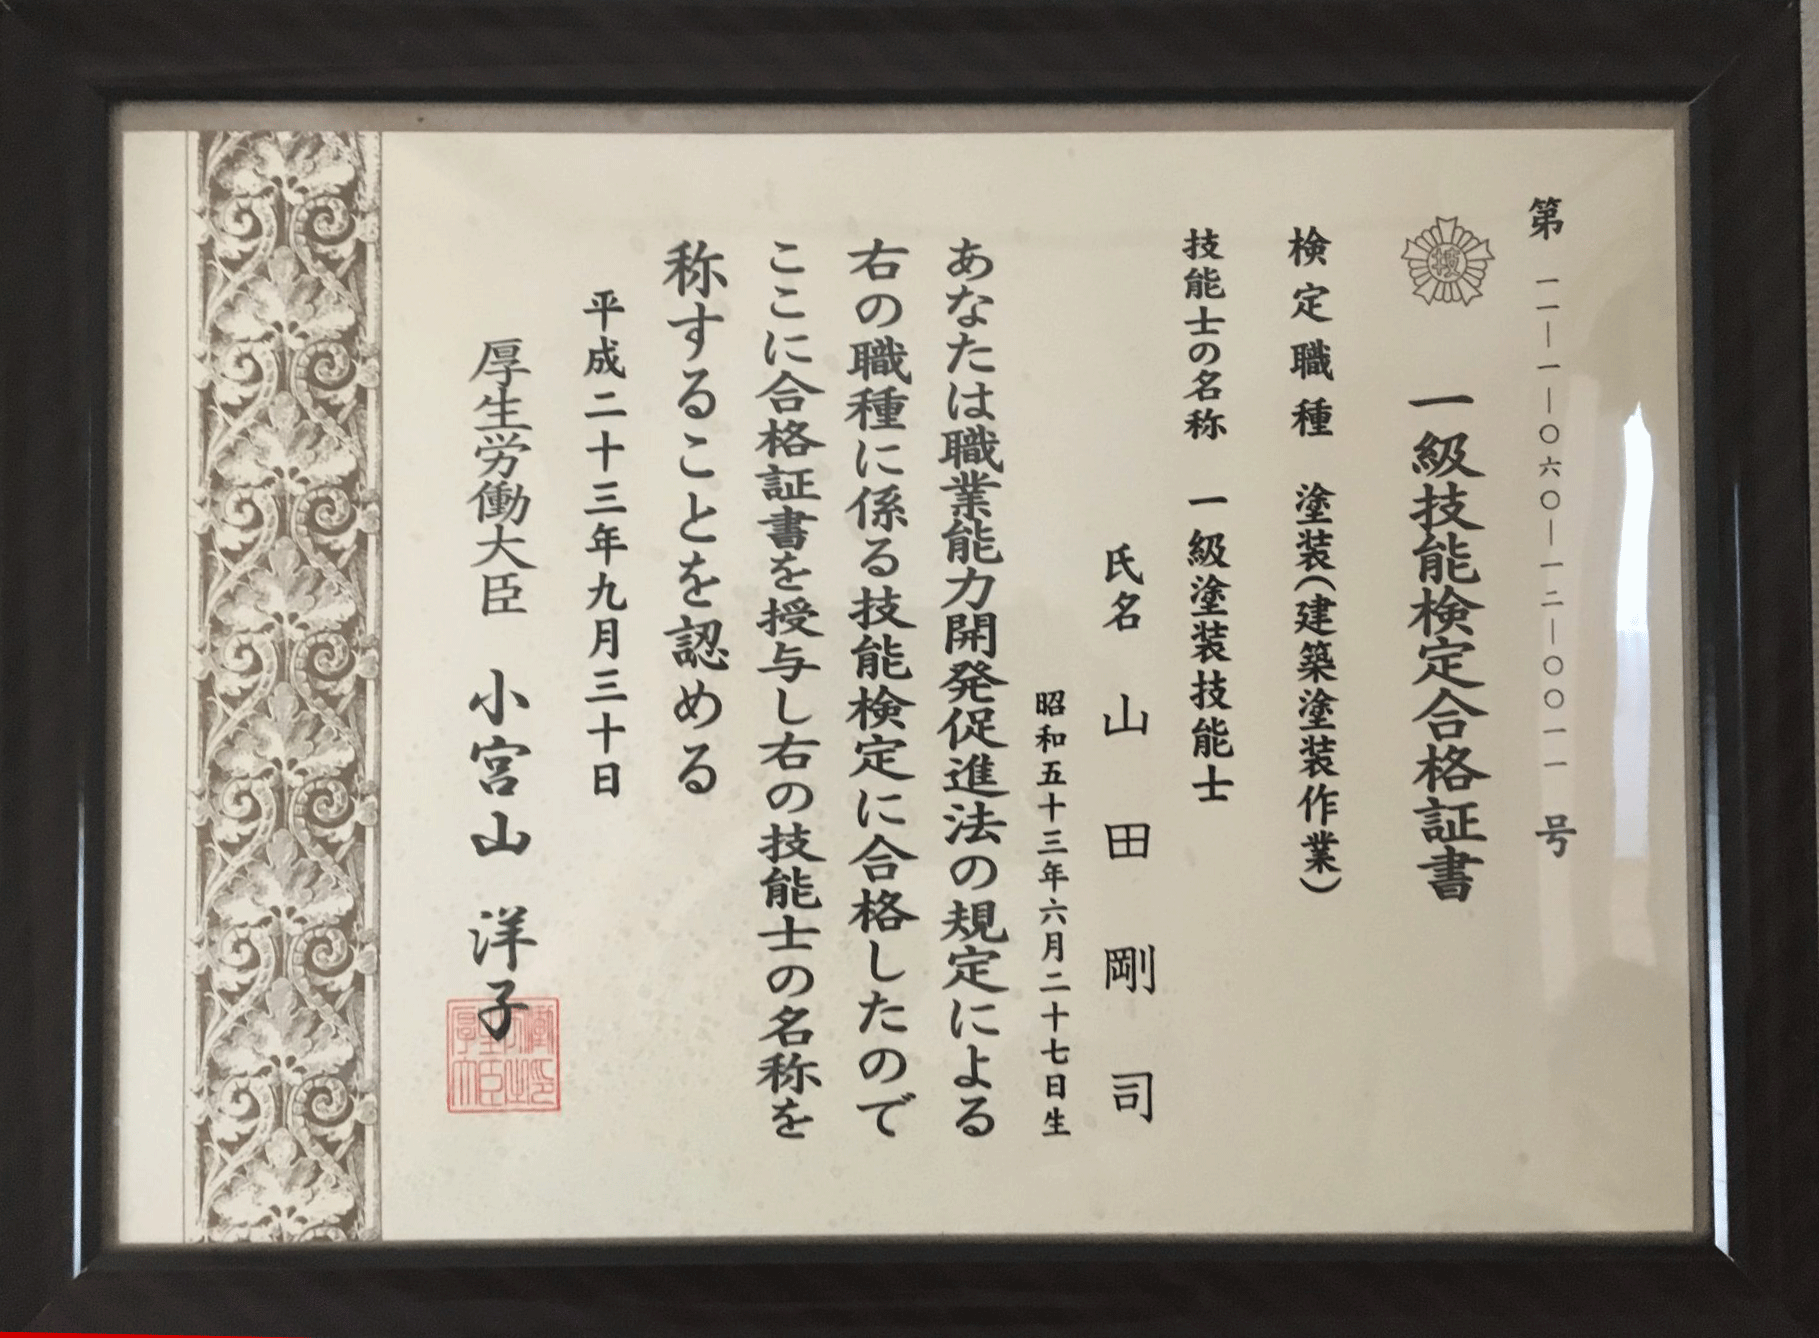 第 一一―一―〇六〇―一二―〇〇一一 号
技
一級技能検定合格証書
検定職種 塗装(建築塗装作業)
技能士の名称 一級塗装技能士
氏名 山田剛司
昭和五十三年六月二十七日生
あなたは職業能力開発促進法の規定による
右の職種に係る技能検定に合格したので
ここに合格証書を授与し右の技能士の名称を
称することを認める
平成二十三年九月三十日
厚生労働大臣 小宮山 洋子